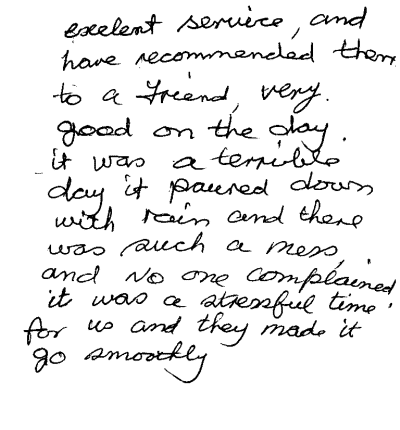 exelent service, and
have recommended them
to a friend, very.
good on the day.
it was a terrible
day it paured down
with rain and there
was such a mess,
and no one complained
it was a stressful time.
for us and they made it
go smoothly